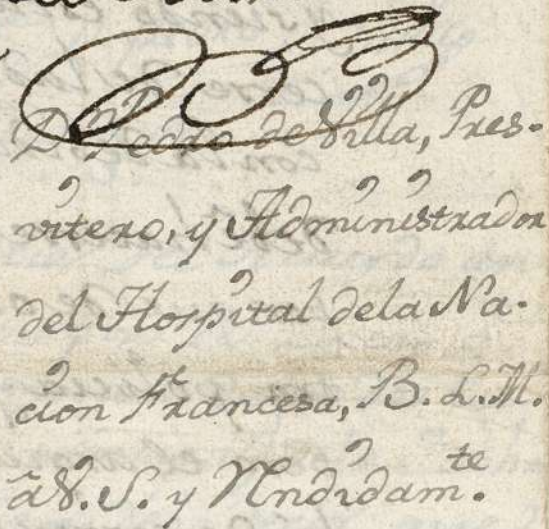 Dn. Pedro de Villa, Pres-
vitero, y Administrador
del Hospital dela Na-
cion Francesa, B. L. M.
à V. S. y Rndidamte.